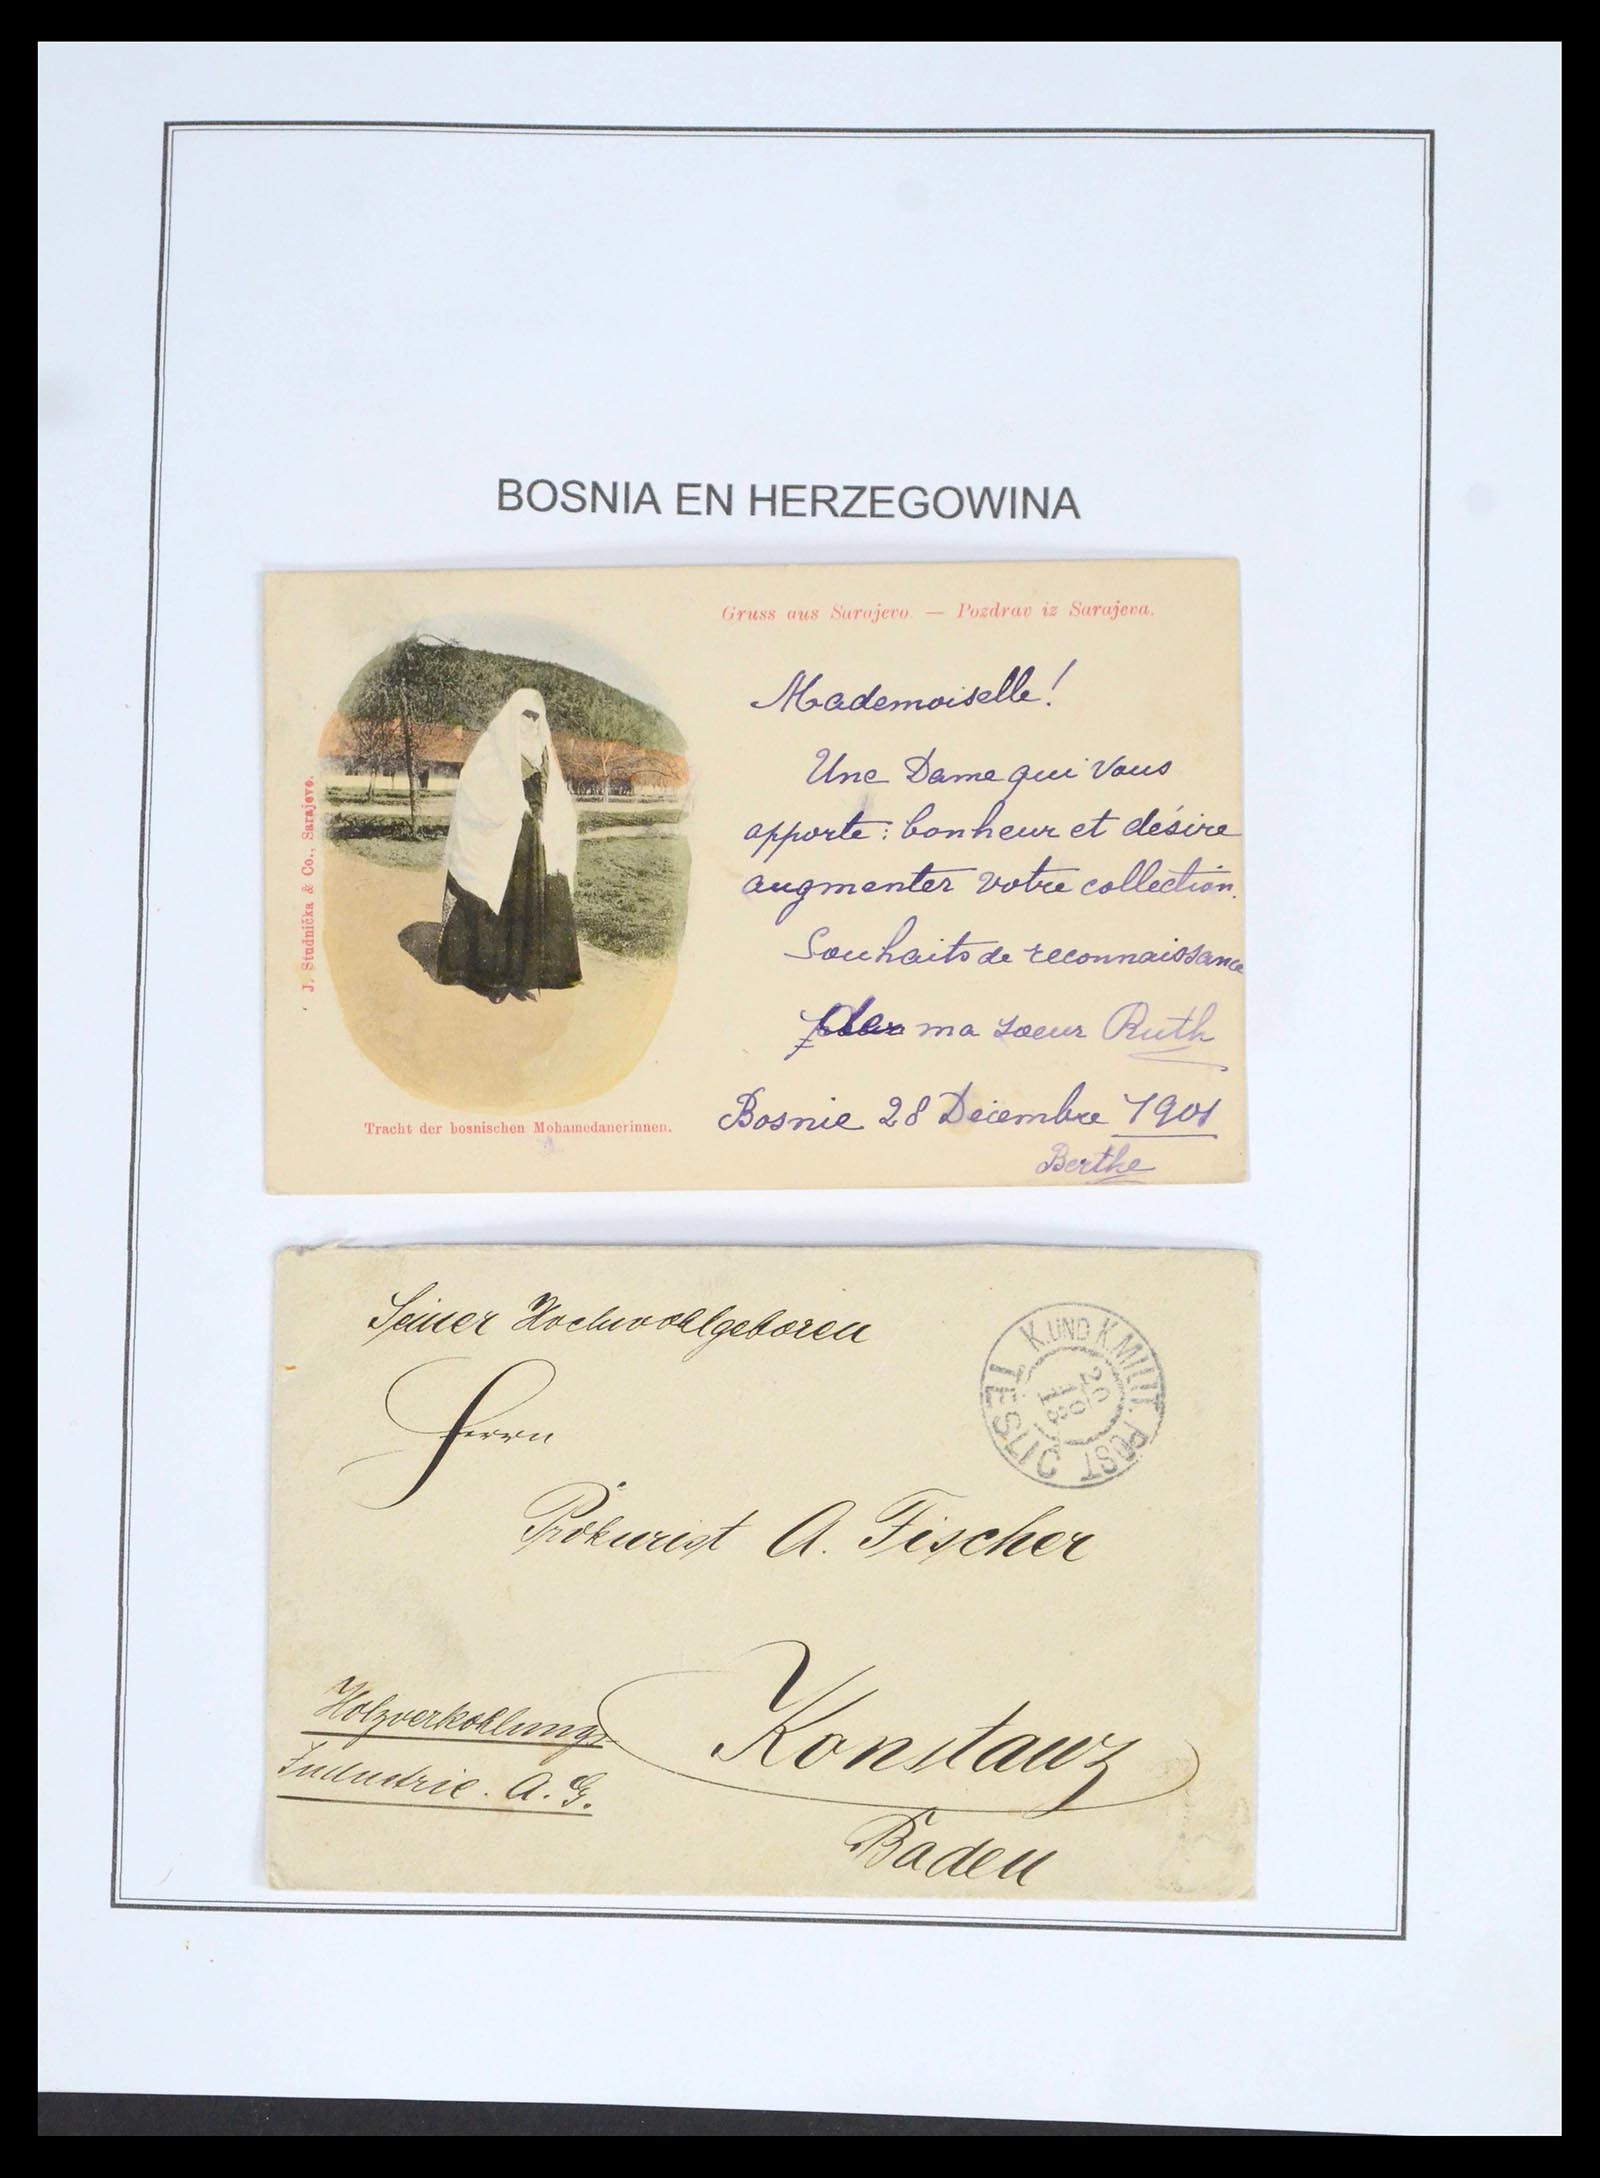 BOSNIA EN HERZEGOWINA
Gruss aus Sarajevo. — Pozdrav iz Sarajeva.
Mademoiselle!
Une Dame qui Vous
apporte : bonheur et désire
augmenter votre collection.
Souhaits de reconnaissance
ma soeur Ruth
Bosnie 28 Decembre 1901
Berthe
J. Studnička & Co., Sarajevo.
Tracht der bosnischen Mohamedanerinnen.
Seiner Hochwohlgeboren
Herrn
Prokurist A. Fischer
Konstanz
Baden
Holzverkohlungs-
Industrie. A. G.
K. UND K. MILIT. POST
TESLIC